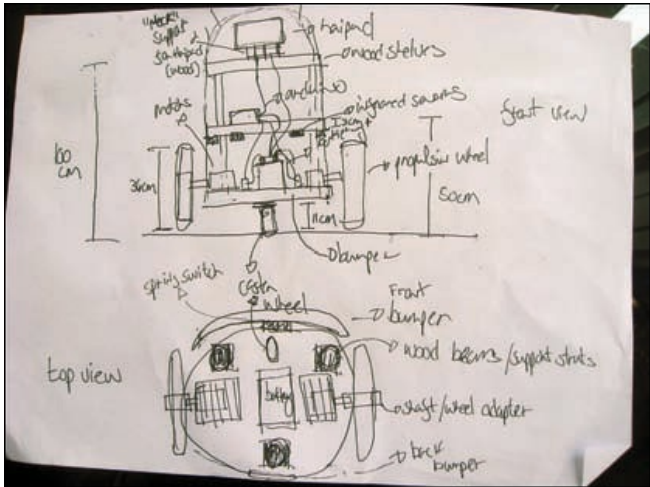 support
(wood)
wood shelves
arduino
motors
infrared sensors
front view
100
cm
36cm
propulsion wheel
50cm
11cm
bumper
spring switch
wheel
Front
bumper
wood beams/support struts
top view
battery
shaft/wheel adapter
back
bumper